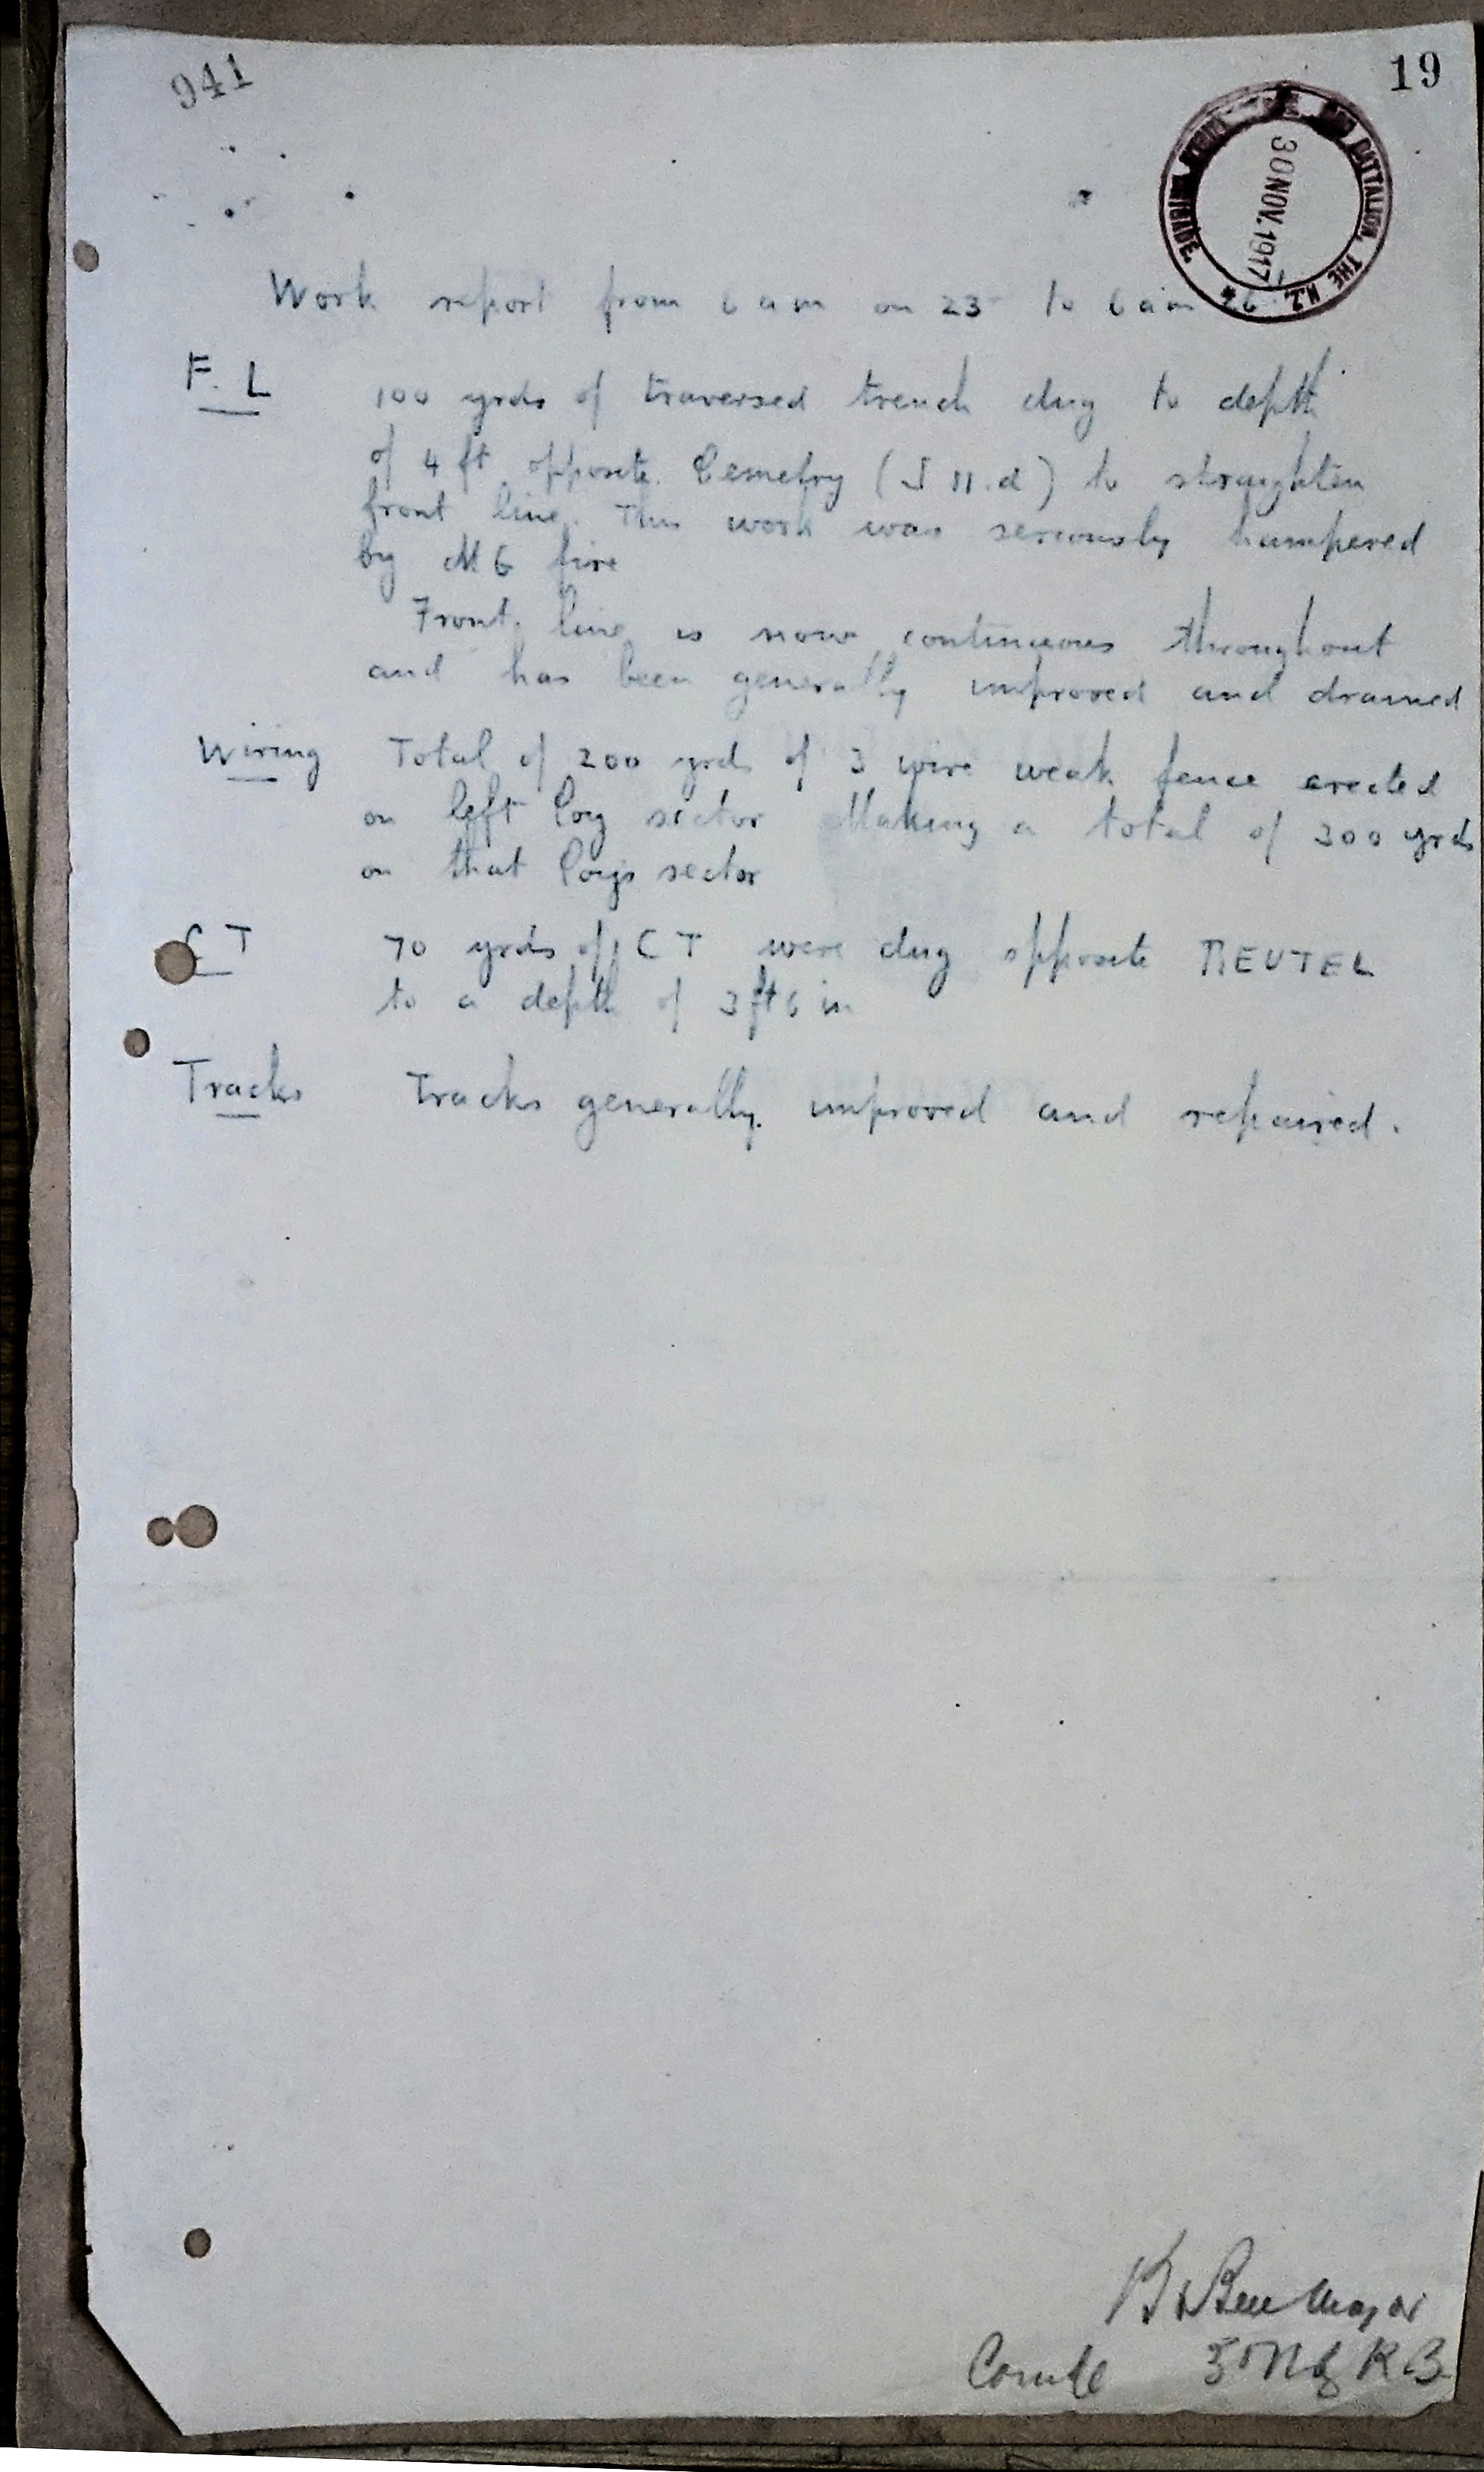 941
19
BATTALION, THE N.Z. BRIGADE.
30 NOV. 1917
Work report from 6 am on 25 to 6 am 26
F. L 100 yrds of traversed trench dug to depth
of 4 ft opposite Cemetry (J 11.d) to straighten
front line. This work was seriously hampered
by M G fire
Front line is now continuous throughout
and has been generally improved and drained
Wiring Total of 200 yrds of 3 wire weak fence erected
on left Coy sector Making a total of 300 yrds
on that Coys sector
C T 70 yrds of C T were dug opposite REUTEL
to a depth of 3 ft 6 in
Tracks Tracks generally improved and repaired.
Major
Comdg 3 NZ R B